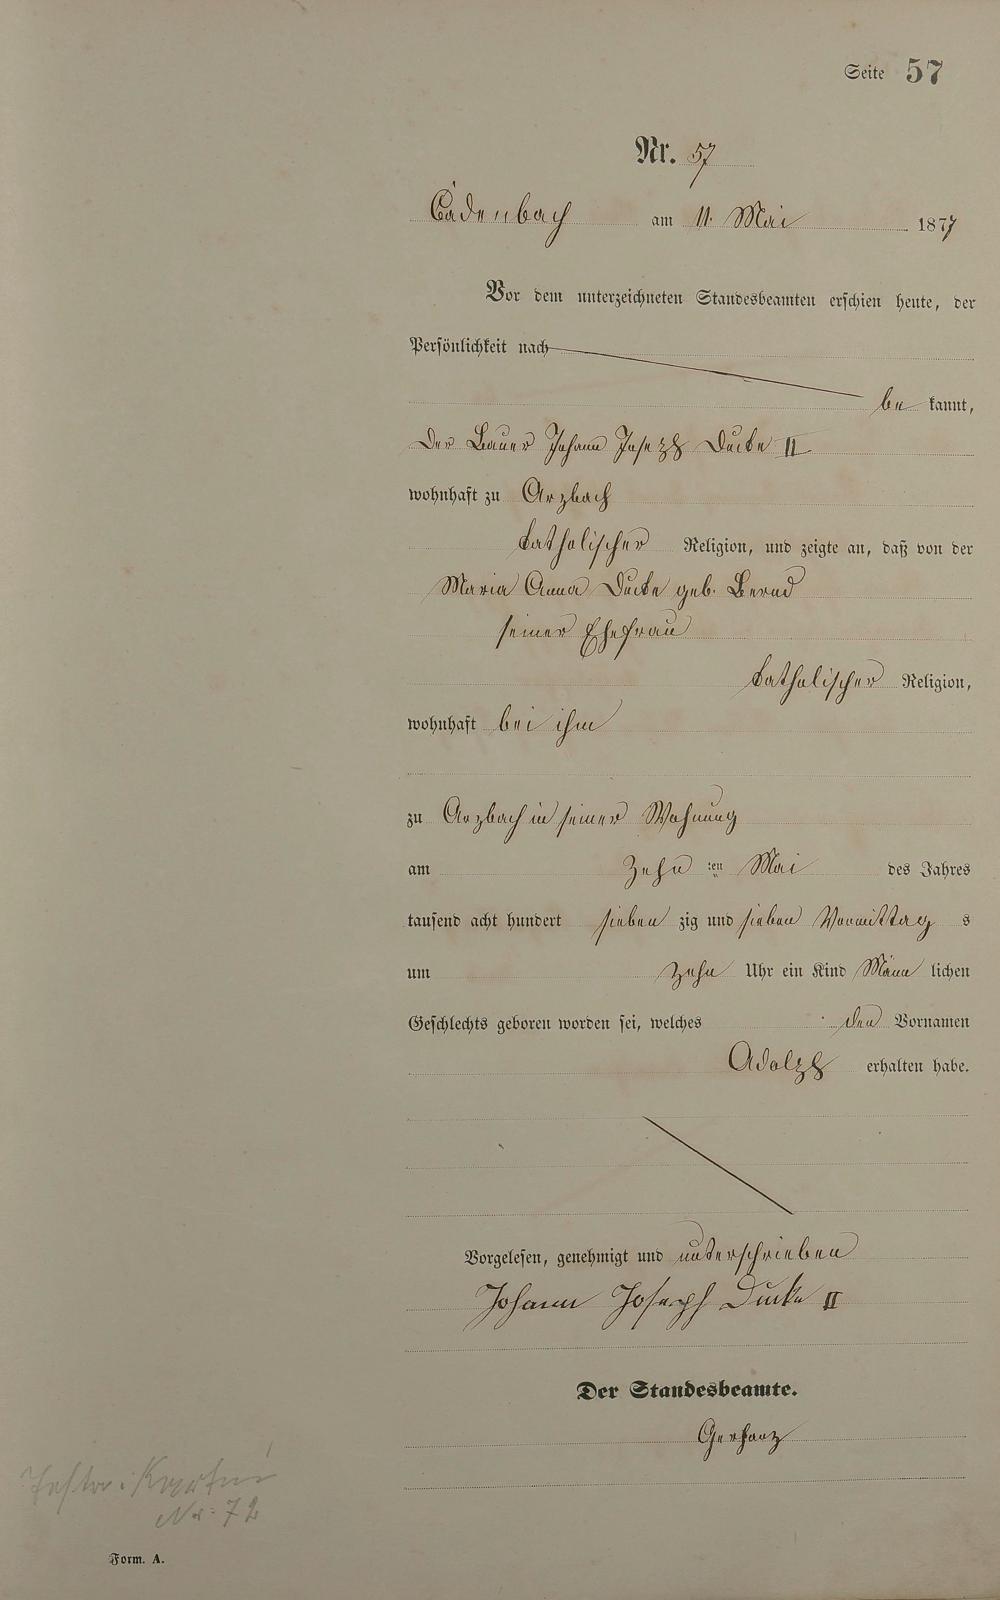 Seite 57
Nr. 57
Cadenbach am 11. Mai 1877
Vor dem unterzeichneten Standesbeamten erschien heute, der
Persönlichkeit nach
be kannt,
der Bauer Johann Joseph Ducke II
wohnhaft zu Arzbach
katholischer Religion, und zeigte an, daß von der
Maria Anna Ducke geb. Bernd
seiner Ehefrau
katholischer Religion,
wohnhaft bei ihm
zu Arzbach in seiner Wohnung
am zehn ten Mai des Jahres
tausend acht hundert sieben zig und sieben Vormittag s
um zehn Uhr ein Kind Männ lichen
Geschlechts geboren worden sei, welches den Vornamen
Adolph erhalten habe.
Vorgelesen, genehmigt und unterschrieben
Johann Joseph Ducke II
Der Standesbeamte.
Gerharz
Nr. 72
Form. A.